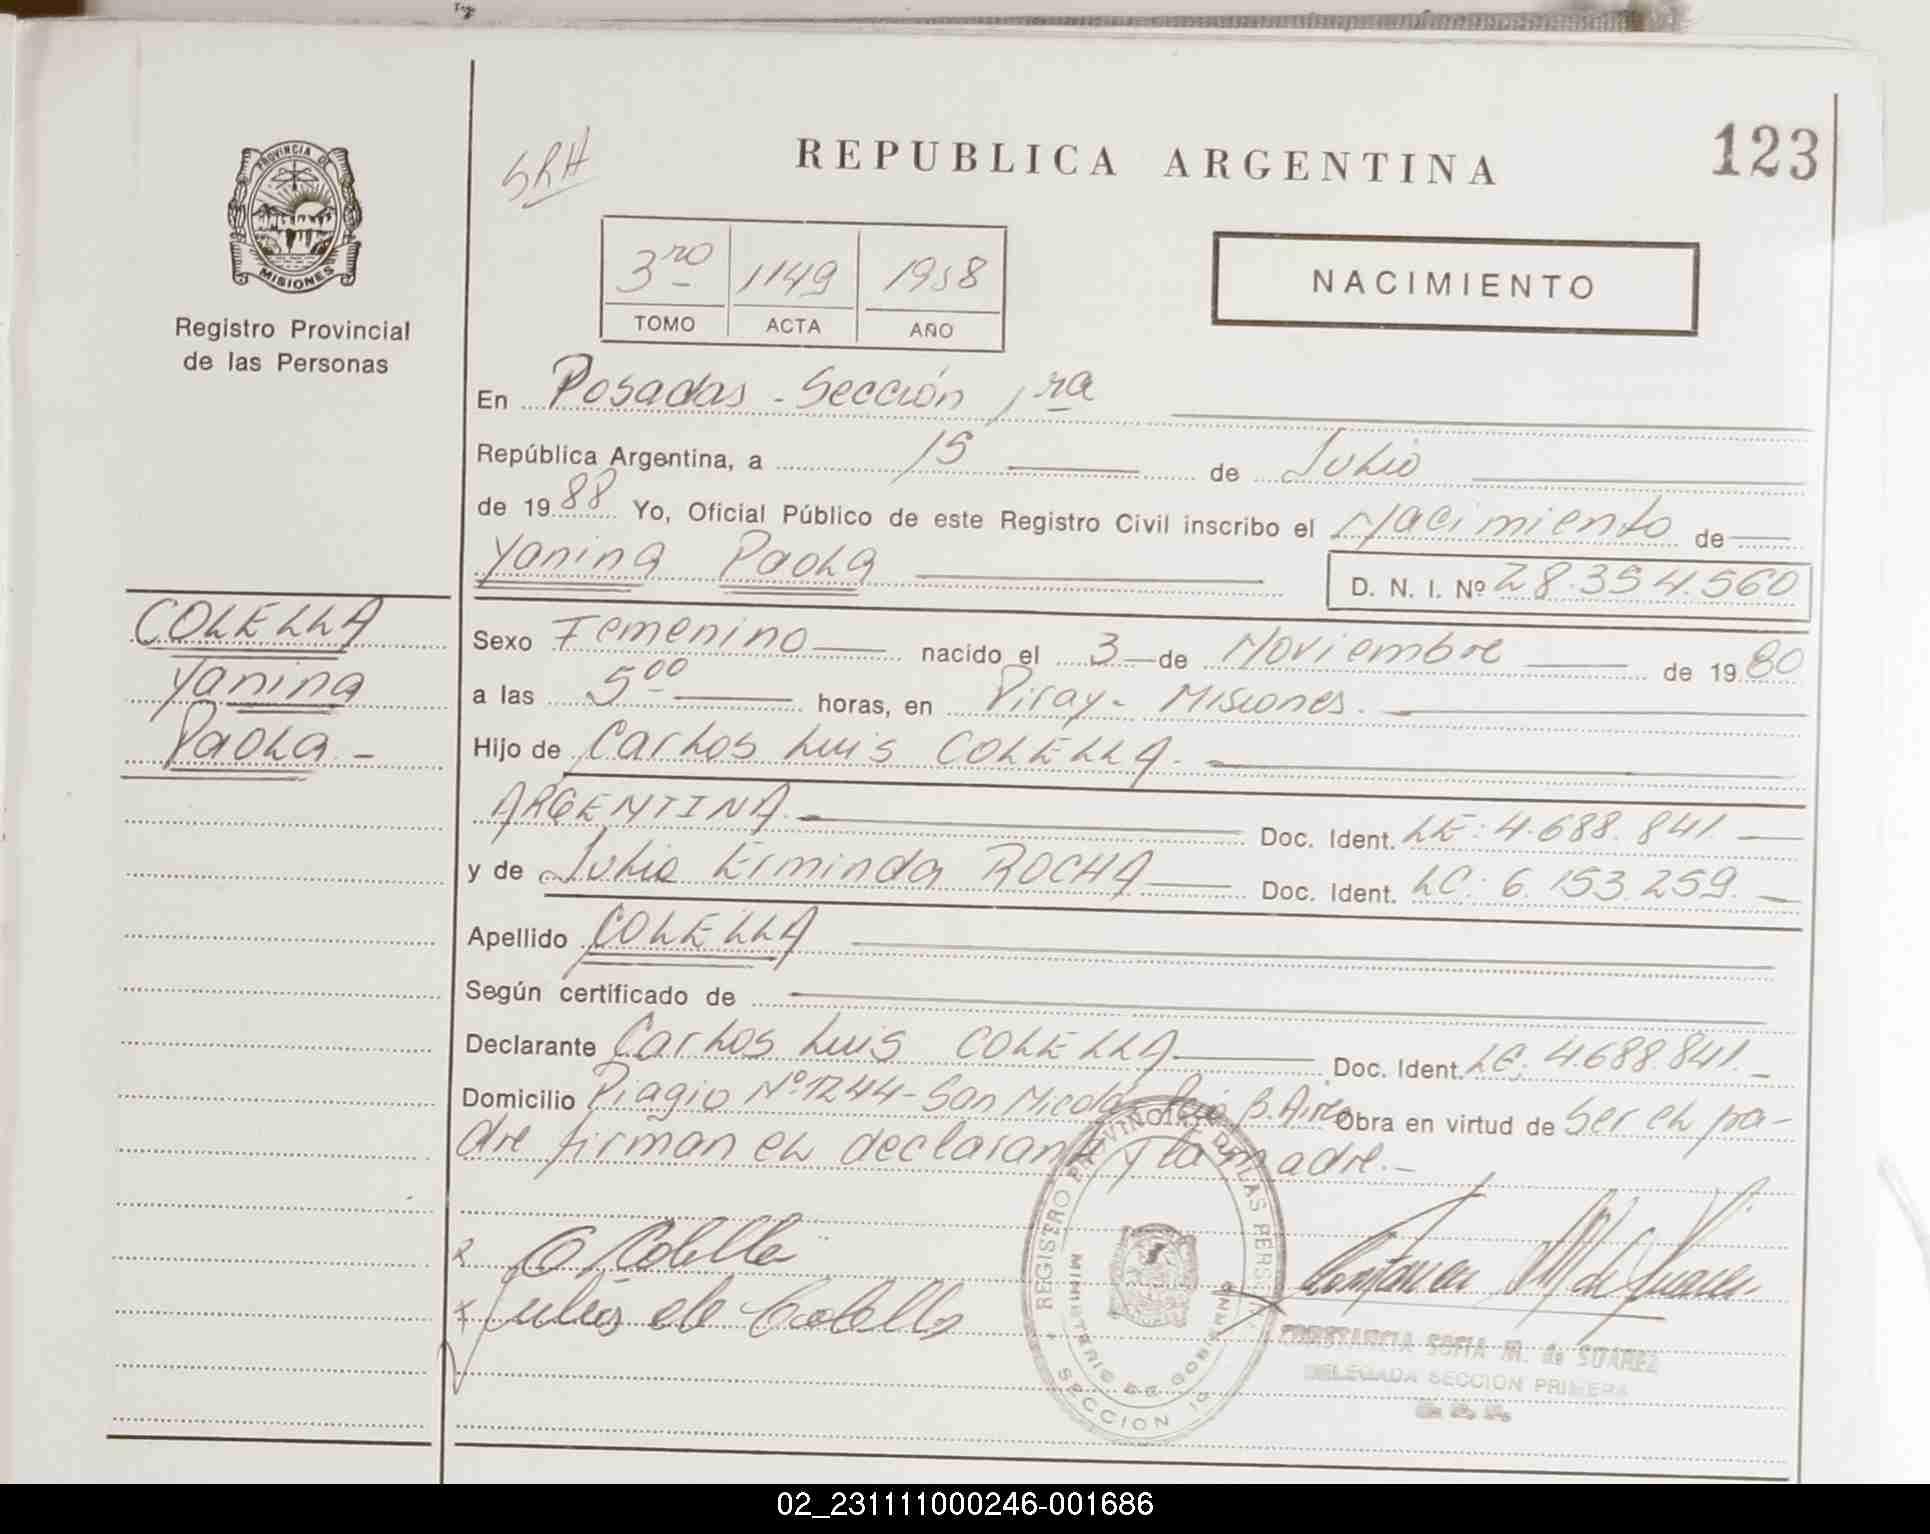 123
REPUBLICA ARGENTINA
SRH
PROVINCIA DE
MISIONES
Registro Provincial
de las Personas
3ro 1149 1988
TOMO ACTA AÑO
NACIMIENTO
En Posadas - Sección 1ra
República Argentina, a 15 de Julio
de 1988 Yo, Oficial Público de este Registro Civil inscribo el Nacimiento de
Yanina Paola D. N. I. Nº 28.354.560
COLELLA
Yanina
Paola.-
Sexo Femenino nacido el 3 de Noviembre de 1980
a las 500 horas, en Piray - Misiones.
Hijo de Carlos Luis COLELLA.
ARGENTINA. Doc. Ident. LE: 4.688.841.
y de Julia Erminda ROCHA Doc. Ident. LC: 6.153.259.
Apellido COLELLA
Según certificado de
Declarante Carlos Luis COLELLA Doc. Ident. LE: 4.688.841.
Domicilio Piagio Nº 1244 - San Nicolás Pcia B. Aires Obra en virtud de Ser el pa-
dre firman el declarante y la madre.-
C Colella
Julia de Colella
REGISTRO PROVINCIAL DE LAS PERSONAS
MINISTERIO DE GOBIERNO
SECCION 1a
CONSTANCIA SOFIA M. de SUAREZ
DELEGADA SECCION PRIMERA
02_231111000246-001686